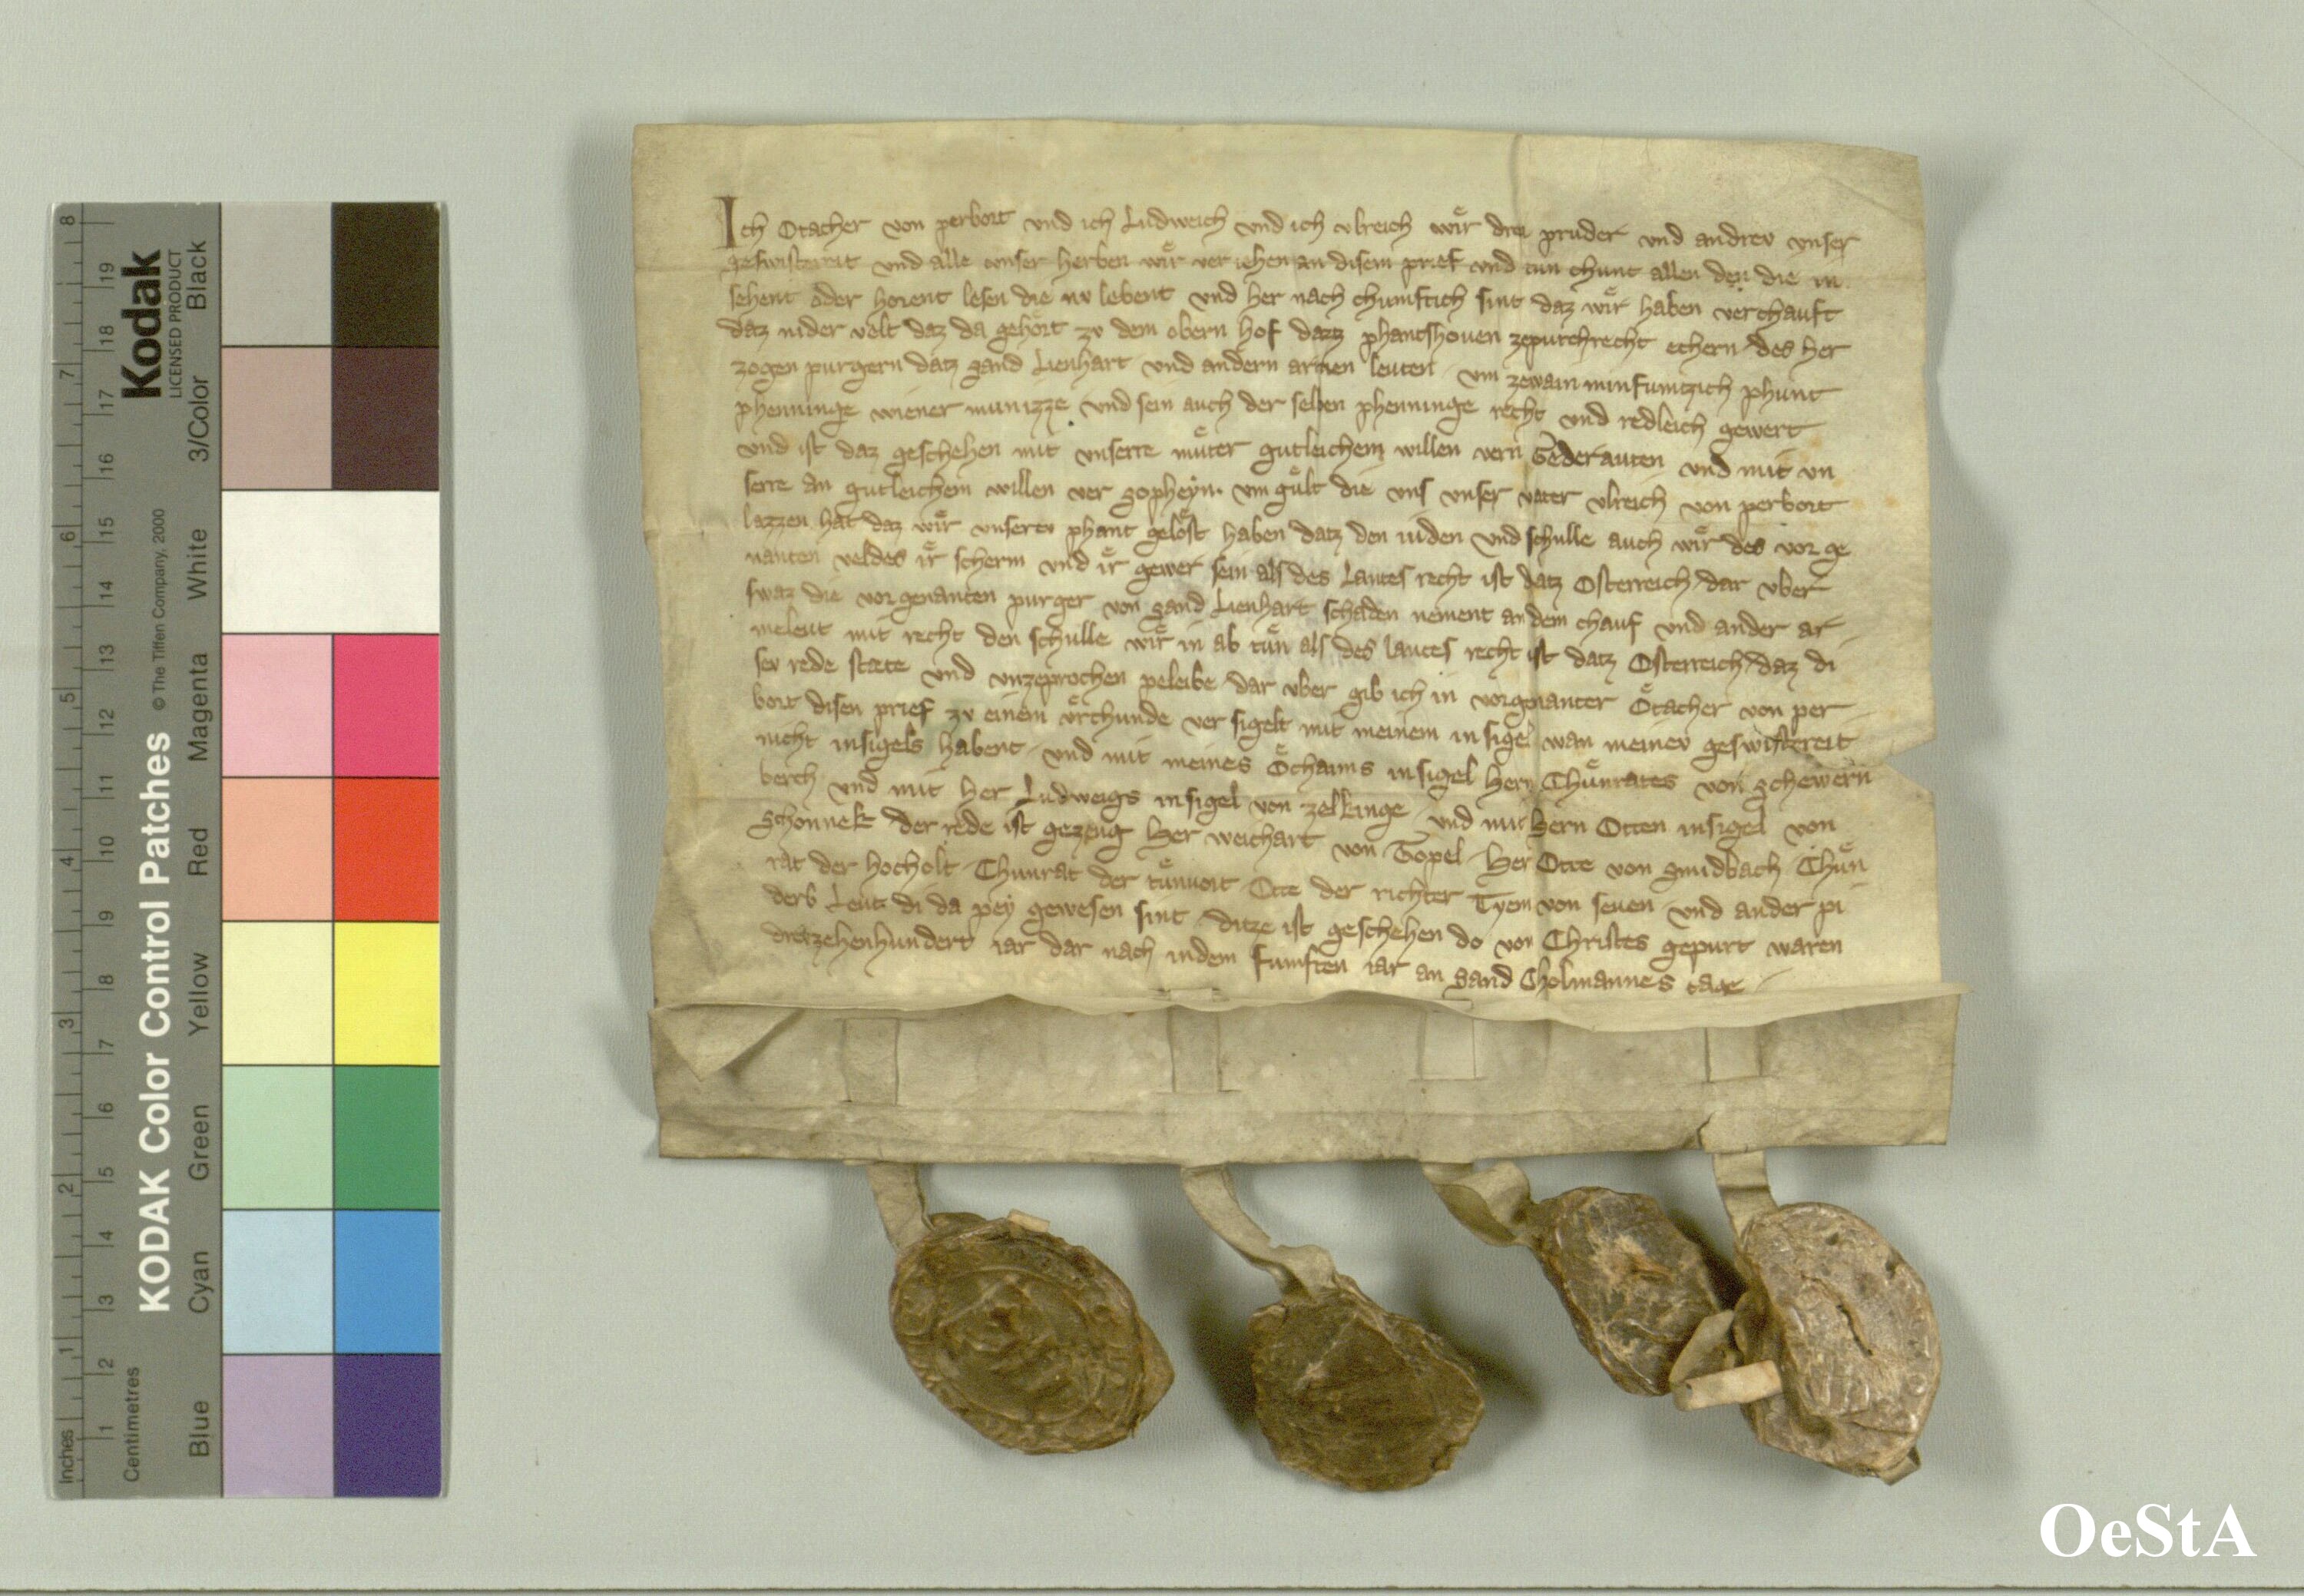 Ich Otacher von perbort und ich Ludweich und ich ulreich wir drei pruder und andrev unser
geswistereit und alle unser herben wir veriehen an disem prief und tun chunt allen den die in
sehent oder horent lesen die nv lebent und her nach chumftich sint daz wir haben verchauft
daz nider velt daz da gehort zv dem obern hof datz phantshouen zepurchrecht echern des her
zogen purgern datz sand Lienhart und andern armen leuten um zewain min fumtzich phunt
phenninge wiener munizze und sein auch der selben phenninge recht und redleich gewert
und ist daz geschehen mit unserre muter gutleichem willen vern Gederauten und mit un
serre an gutleichem willen ver sopheyn um gult die uns unser vater ulreich von perbort
lazzen hat daz wir unserev phant gelost haben datz den iuden und schulle auch wir des vor ge
nanten veldes ir scherm und ir gewer sein als des Lantes recht ist datz Osterreich dar uber
swaz die vorgenanten purger von sand Lienhart schaden nement an dem chauf und ander ar
meleut mit recht den schulle wir in ab tun als des lantes recht ist datz Osterreich daz di
sev rede stæte und unzeprochen peleibe dar uber gib ich in vorgenanter Otacher von per
bort disen prief zv einem urchunde ver sigelt mit meinem insigel wan meinev geswistereit
nicht insigels habent und mit meines Ochaims insigel hern Chunrates von schewern
berch und mit her Ludweigs insigel von zelkinge und mit hern Otten insigel von
Schonnek der rede ist gezeug her weichart von Topel her Otte von gmidbach Chun
rat der hocholt Chunrat der tunuort Otte der richter Tyem von seuen und ander pi
derb Leut di da pey gewesen sint ditze ist geschehen do von Christes gepurt waren
dretzehenhundert iar dar nach indem fumften iar an sand Cholmannes tage
Kodak
LICENSED PRODUCT
KODAK Color Control Patches © The Tiffen Company, 2000
Black
3/Color
White
Magenta
Red
Yellow
Green
Cyan
Blue
Inches
1 2 3 4 5 6 7 8
Centimetres
1 2 3 4 5 6 7 8 9 10 11 12 13 14 15 16 17 18 19
OeStA